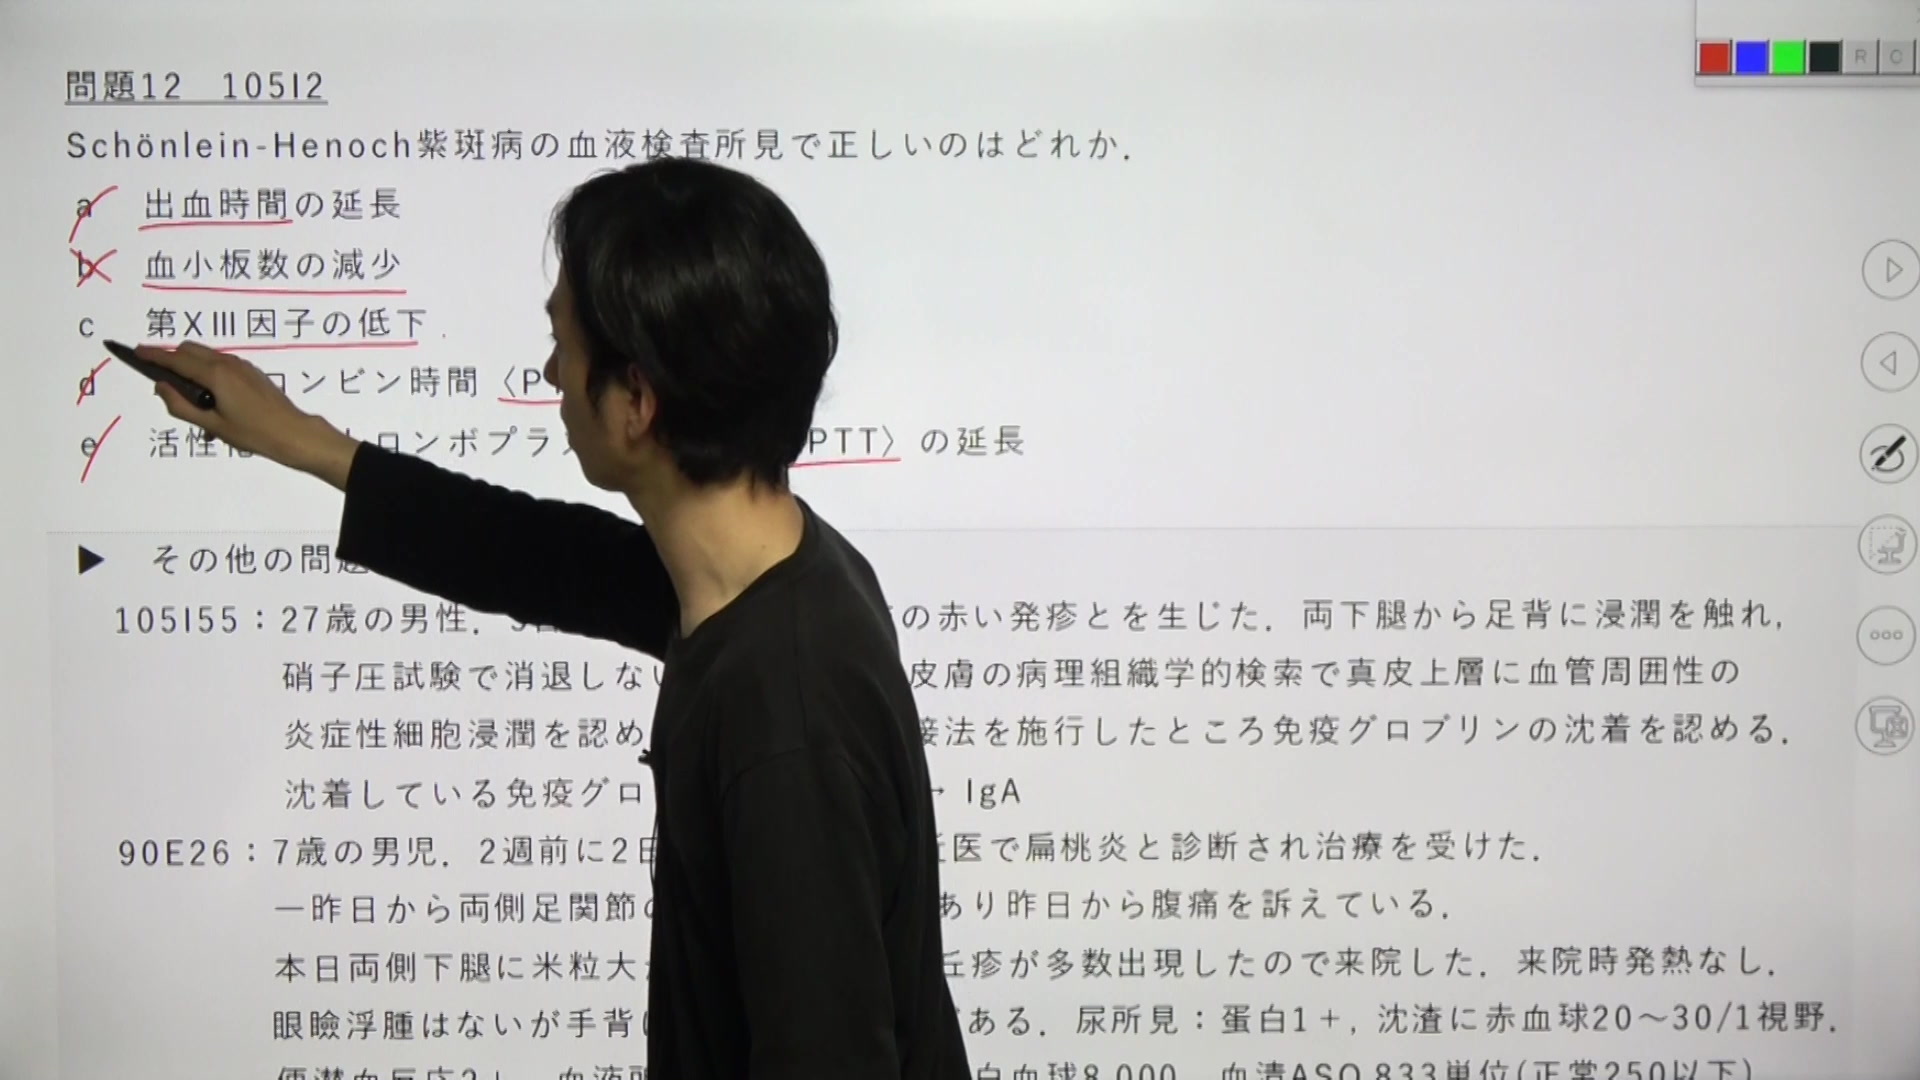 問題12 105I2
Schönlein-Henoch紫斑病の血液検査所見で正しいのはどれか.
a 出血時間の延長
b 血小板数の減少
c 第XIII因子の低下
d ロンビン時間〈P
e 活性 トロンボプラ PTT〉の延長
▶ その他の問
105I55：27歳の男性. の赤い発疹とを生じた. 両下腿から足背に浸潤を触れ,
硝子圧試験で消退しな 皮膚の病理組織学的検索で真皮上層に血管周囲性の
炎症性細胞浸潤を認め 接法を施行したところ免疫グロブリンの沈着を認める.
沈着している免疫グロ → IgA
90E26：7歳の男児. 2週前に2日 近医で扁桃炎と診断され治療を受けた.
一昨日から両側足関節 あり昨日から腹痛を訴えている.
本日両側下腿に米粒大 丘疹が多数出現したので来院した. 来院時発熱なし.
眼瞼浮腫はないが手背 ある. 尿所見：蛋白1＋, 沈渣に赤血球20〜30/1視野.
便潜血反応2＋ 血液 白血球8,000 血清ASO 833単位(正常250以下)
R C